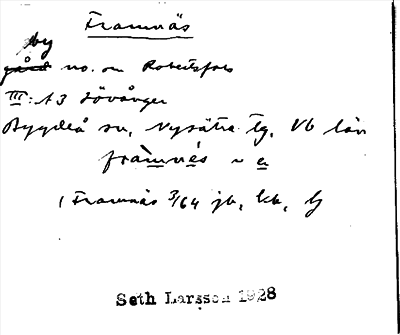 Framnäs
by
gård no. om Robertsfors
III: A3 Lövånger
Bygdeå sn, Nysätra tg, Vb län
fràmnés ~ e
1 Framnäs 3/64 jb, kb, lj
Seth Larsson 1928